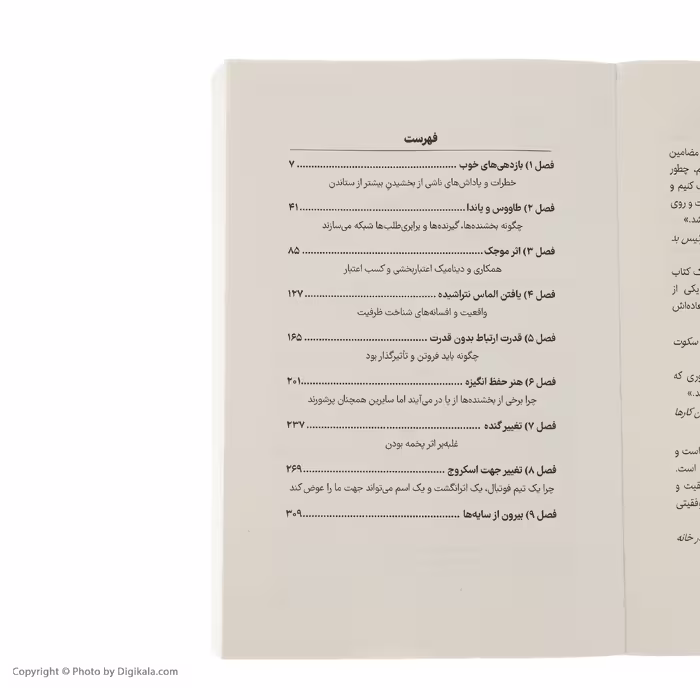 فهرست
فصل ۱) بازدهی‌های خوب ................................................ ۷
خطرات و پاداش‌های ناشی از بخشیدنِ بیشتر از ستاندن
فصل ۲) طاووس و پاندا ................................................ ۴۱
چگونه بخشنده‌ها، گیرنده‌ها و برابری‌طلب‌ها شبکه می‌سازند
فصل ۳) اثر موجک ................................................ ۸۵
همکاری و دینامیک اعتباربخشی و کسب اعتبار
فصل ۴) یافتن الماس نتراشیده ........................................ ۱۲۷
واقعیت و افسانه‌های شناخت ظرفیت
فصل ۵) قدرت ارتباط بدون قدرت ...................................... ۱۶۵
چگونه باید فروتن و تأثیرگذار بود
فصل ۶) هنر حفظ انگیزه ................................................ ۲۰۱
چرا برخی از بخشنده‌ها از پا در می‌آیند اما سایرین همچنان پرشورند
فصل ۷) تغییر گنده ................................................ ۲۳۷
غلبه‌بر اثر پخمه بودن
فصل ۸) تغییر جهت اسکروچ ............................................ ۲۶۹
چرا یک تیم فوتبال، یک اثرانگشت و یک اسم می‌تواند جهت ما را عوض کند
فصل ۹) بیرون از سایه‌ها ................................................ ۳۰۹
مضامین
چطور
کنیم و
ت و روی
شد.»
ئیس بد
ک کتاب
یکی از
سکوت
وری که
ن کارها
است و
است.
فیت و
وفقیتی
ر خانه
Copyright © Photo by Digikala.com